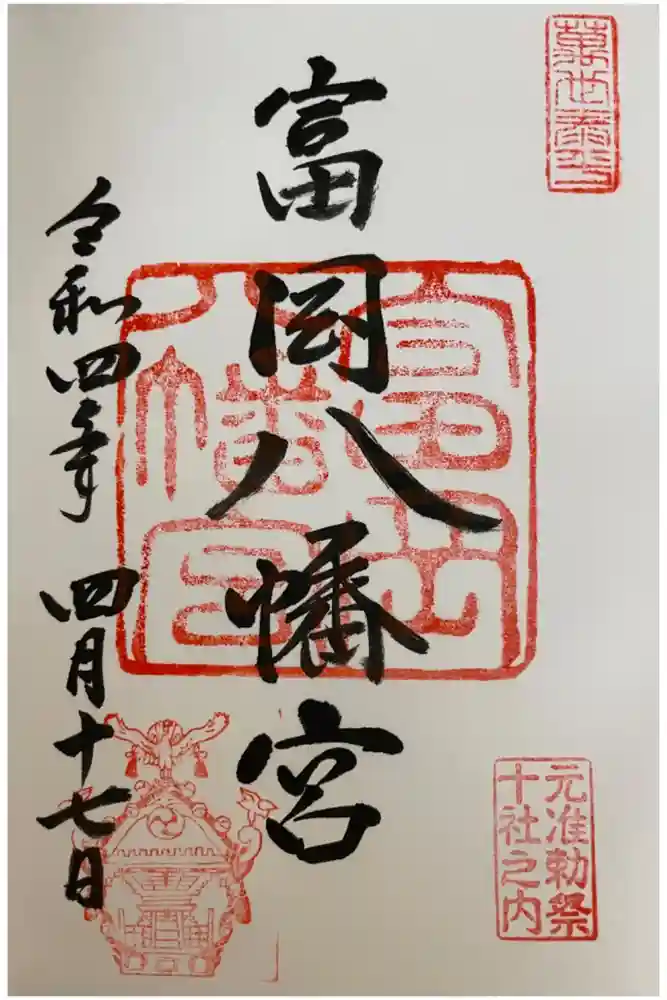 富岡八幡宮
令和四年 四月十七日
富岡
八幡宮
元准勅祭
十社之内